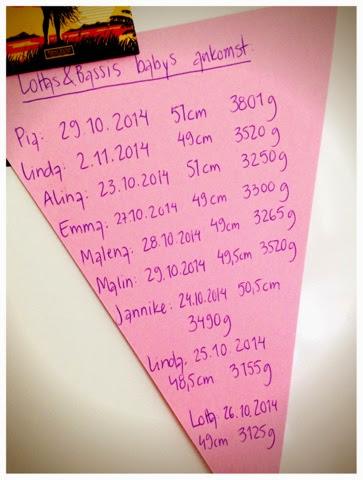 Lottas & Bassis babys ankomst.
Pia: 29.10.2014 51cm 3801g
Linda: 2.11.2014 49cm 3520g
Alina: 23.10.2014 51cm 3250g
Emma: 27.10.2014 49cm 3300g
Malena: 28.10.2014 49cm 3265g
Malin: 29.10.2014 49,5cm 3520g
Jannike: 24.10.2014 50,5cm
3490g
Linda: 25.10.2014
48,5cm 3155g
Lotta: 26.10.2014
49cm 3125g